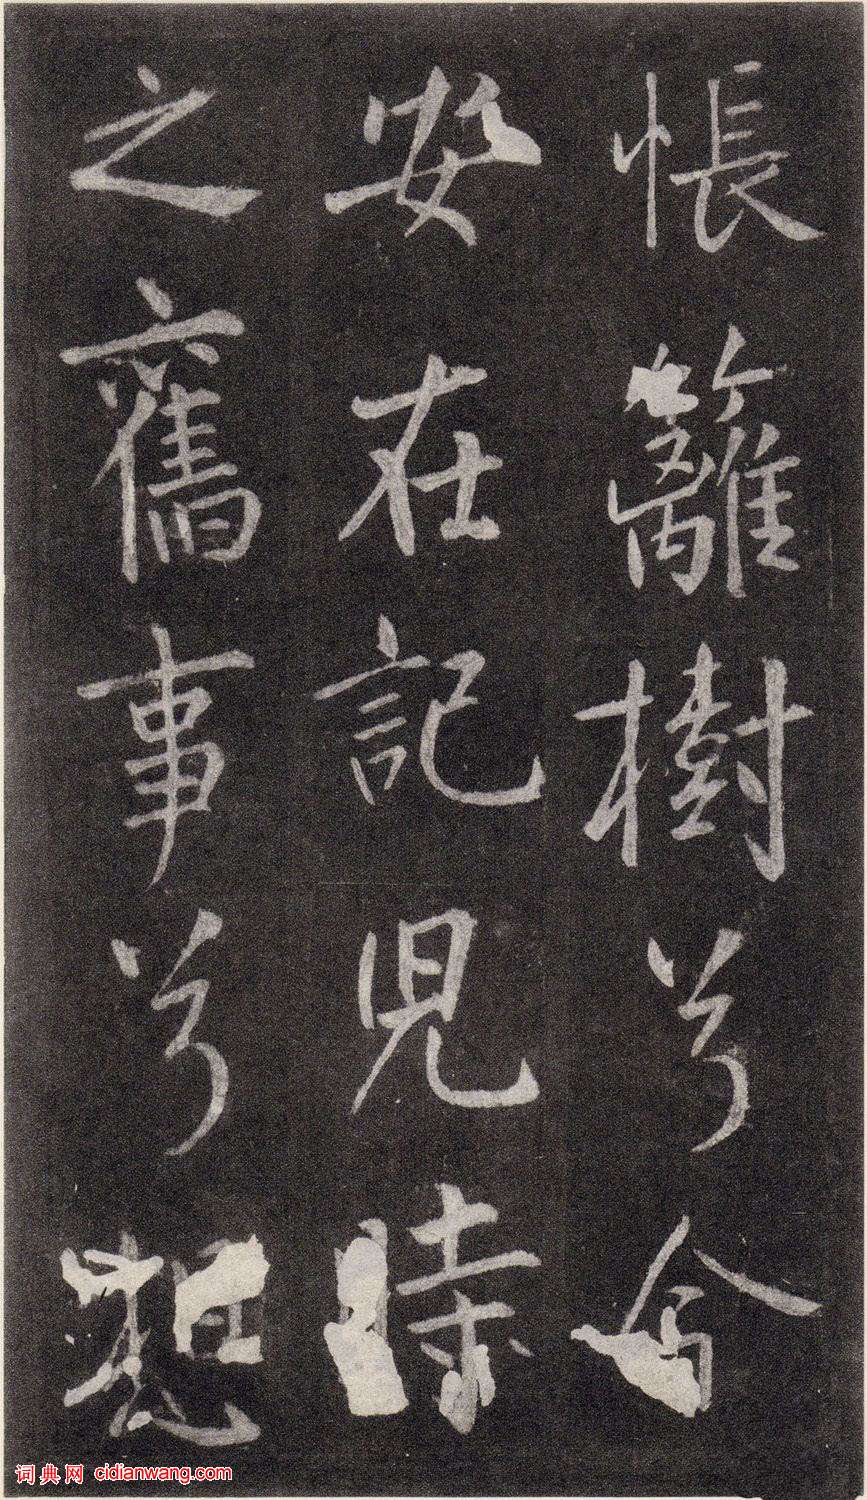 悵籬樹兮今
安在記兒時
之舊事兮想
词典网 cidianwang.com